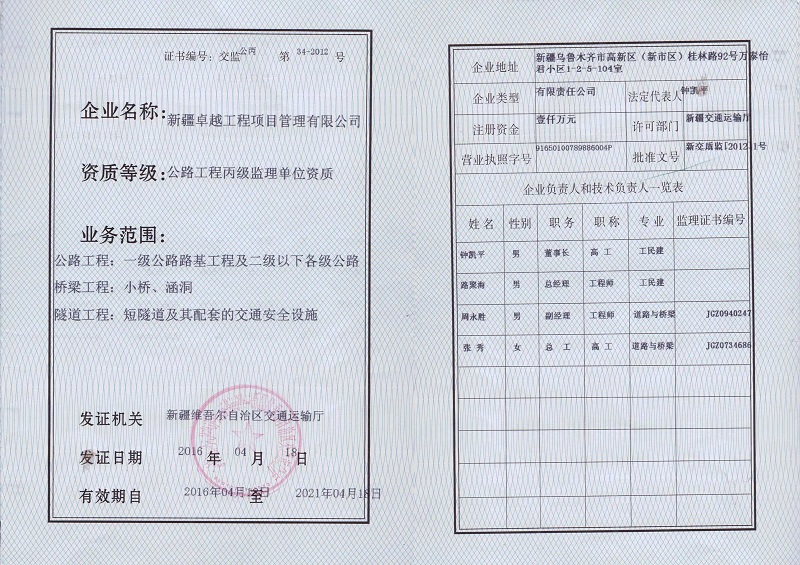 证书编号：交监公丙 第 34-2012 号
企业名称：新疆卓越工程项目管理有限公司
资质等级：公路工程丙级监理单位资质
业务范围：
公路工程：一级公路路基工程及二级以下各级公路
桥梁工程：小桥、涵洞
隧道工程：短隧道及其配套的交通安全设施
发证机关 新疆维吾尔自治区交通运输厅
发证日期 2016 年 04 月 18 日
有效期自 2016年04月18日 至 2021年04月18日
企业地址 新疆乌鲁木齐市高新区（新市区）桂林路92号万泰怡
君小区1-2-5-104室
企业类型 有限责任公司 法定代表人 钟凯平
注册资金 壹仟万元 许可部门 新疆交通运输厅
营业执照字号 91650100789886004P 批准文号 新交质监[2012]1号
企业负责人和技术负责人一览表
姓名 性别 职务 职称 专业 监理证书编号
钟凯平 男 董事长 高工 工民建
路聚海 男 总经理 工程师 工民建
周永胜 男 副经理 工程师 道路与桥梁 JGZ0940247
张秀 女 总工 高工 道路与桥梁 JGZ0734686